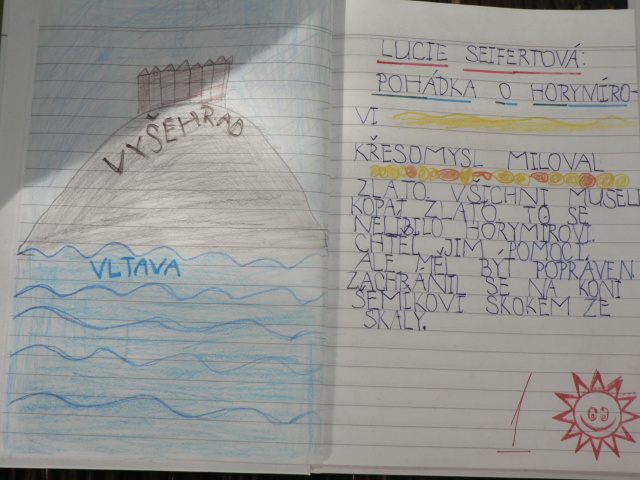 VYŠEHRAD
VLTAVA
LUCIE SEIFERTOVÁ:
POHÁDKA O HORYMÍRO-
VI
KŘESOMYSL MILOVAL
ZLATO. VŠICHNI MUSELI
KOPAT ZLATO. TO SE
NELÍBILO HORYMÍROVI.
CHTĚL JIM POMOCI.
ALE MĚL BÝT POPRAVEN.
ZACHRÁNIL SE NA KONI
ŠEMÍKOVI SKOKEM ZE
SKÁLY.
1